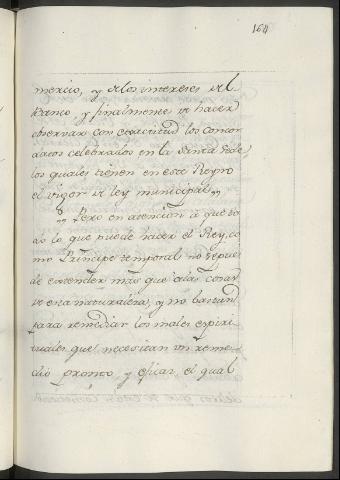 164
mercio, y a los intereses del
Banco, y finalmente de hacer
observar con exactitud los concor
datos celebrados en la Santa Sede,
los quales tienen en este Reyno
el vigor de ley municipal,,
,, Pero en atencion à que to
do lo que puede hacer el Rey, co
mo Principe temporal no se pue
de entender màs que à las cosas
de esa naturaleza, y no bastan
para remediar los males espiri
tuales que necesitan un reme
dio pronto, y eficaz, el qual